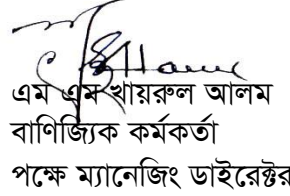 এম এম খায়রুল আলম
বাণিজ্যিক কর্মকর্তা
পক্ষে ম্যানেজিং ডাইরেক্টর